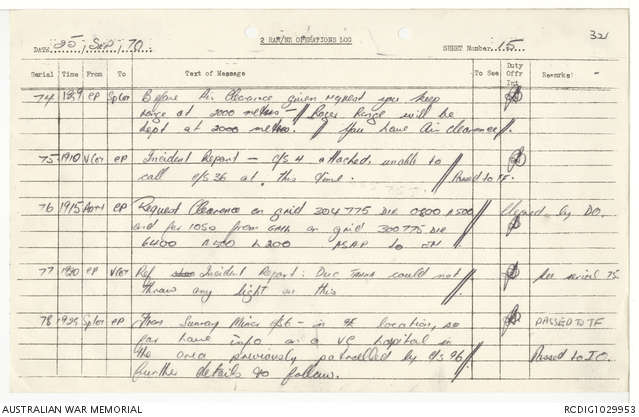 2 RAR/NZ OPERATIONS LOG
321
DATE 25, Sep, 70.
SHEET Number 15.
Serial Time From To Text of Message To See Duty Offr Int Remarks:
74 1859 CP Before Air Clearance given request you keep
range at 2000 metres - // Roger Range will be
kept at 2000 metres. // You have air clearance //.
75 1910 CP Incident Report - c/s 4 attached unable to
call c/s 36 at this time. // Passed to TF.
76 1915 CP Request Clearance on grid 304775 DIR 0800
and for 1050 from on grid 300775 DIR
6400 ASAP to // Cleared by DO.
77 1920 CP Ref Incident Report: Duc Thanh could not
throw any light on this // See serial 75.
78 CP From Sunray Minor - in location, so
far have info on a VC hospital in
the area previously patrolled by c/s 96 //
further details to follow.
PASSED TO TF
Passed to I.O.
AUSTRALIAN WAR MEMORIAL
RCDIG1029953